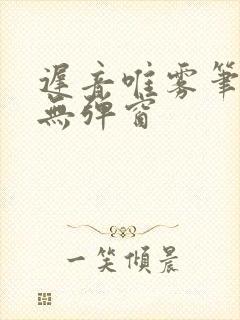 遲音唯雾筆
無彈窗
一笑傾晨